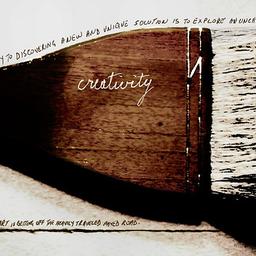 Y TO DISCOVERING A NEW AND UNIQUE SOLUTION IS TO EXPLORE
creativity
ART IS BEING OFF THE HEAVILY TRAVELED PAVED ROAD.